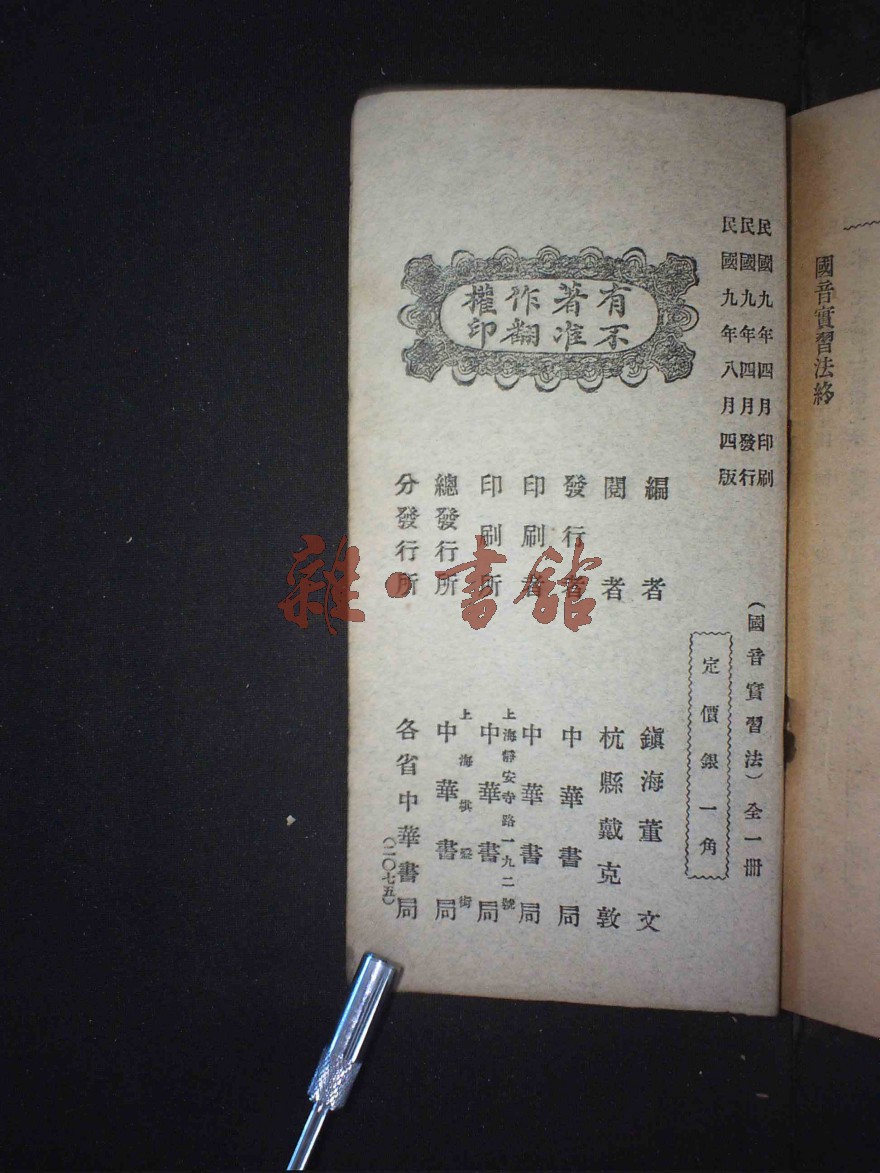 國音實習法終
民國九年四月印刷
民國九年四月發行
民國九年八月四版
（國音實習法）全一冊
定價銀一角
有著作權
不准翻印
編者 鎮海董文
閱者 杭縣戴克敦
發行者 中華書局
印刷者 中華書局
印刷所 上海靜安寺路一九二號 中華書局
總發行所 上海棋盤街 中華書局
分發行所 各省中華書局
（二〇七五）
雜·書館